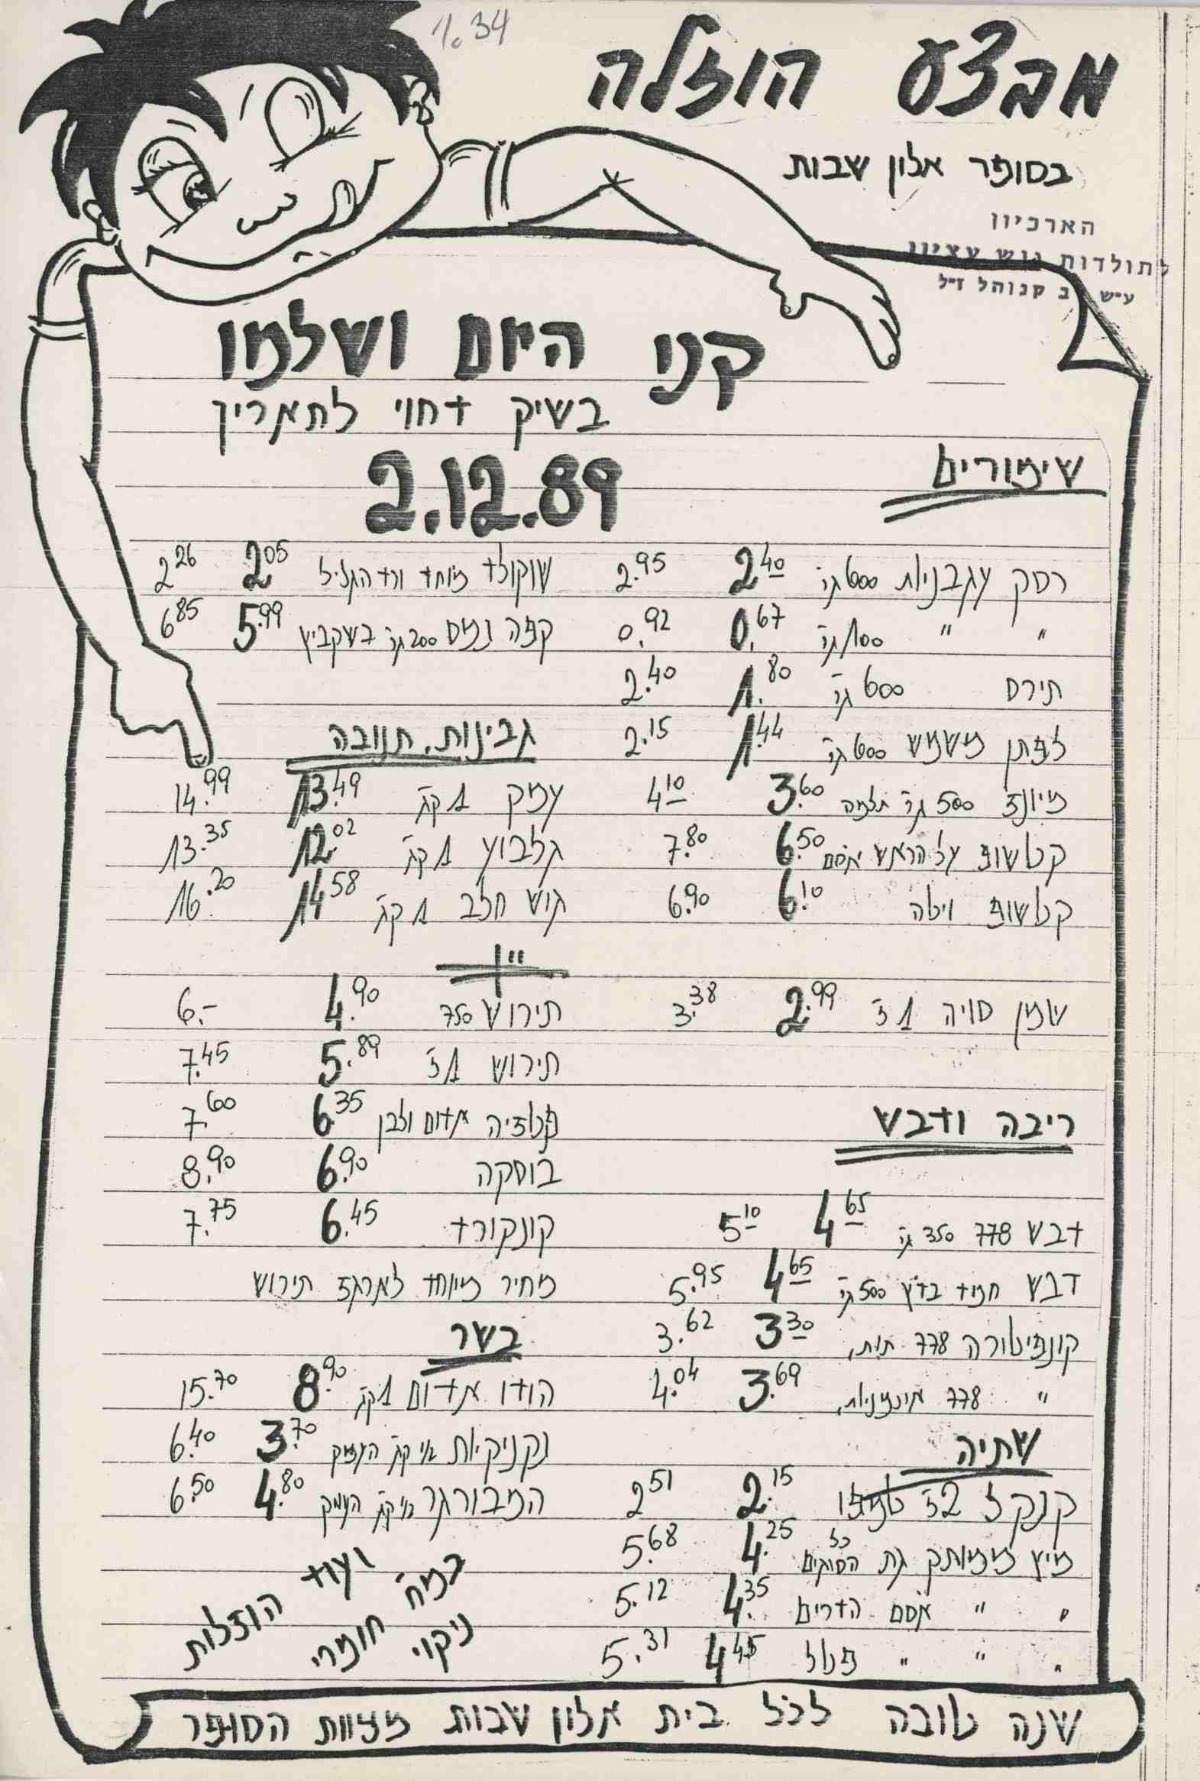 1. 34
מבצע הוזלה
בסופר אלון שבות
הארכיון
לתולדות גוש עציון
ע״ש קנוהל ז״ל
קני היום ושלמו
בשיק דחוי לתאריך
2.12.89
שימורים
רסק עגבניות 600 גר׳ 2.40 2.95
" " 100 גר׳ 0.67 0.92
תירס 600 גר׳ 1.80 2.40
לפתן משמש 600 גר׳ 1.44 2.15
מיונז 500 גר׳ תלמה 3.60 4.10
קטשופ על הראש אסם 6.50 7.80
קטשופ ויטה 6.10 6.90
שמן סויה 1 ל׳ 2.99 3.38
ריבה ודבש
דבש 778 350 גר׳ 4.65 5.10
דבש חמד בד״ץ 500 גר׳ 4.65 5.95
קונפיטורה 778 תות, 3.30 3.62
" 778 אוכמניות, 3.69 4.04
שתיה
קנקל 2 ל׳ טמפו 2.15 2.51
מיץ ממותק גת כל הסוגים 4.25 5.68
" " אסם הדרים 4.35 5.12
" " " פטל 4.45 5.31
שוקולד מיוחד ורד הגליל 2.05 2.26
קפה נמס 200 גר׳ בשקביץ 5.99 6.85
גבינות. תנובה
עמק 1 קג׳ 13.49 14.99
גלבוע 1 קג׳ 12.02 13.35
גוש חלב 1 קג׳ 14.58 16.20
יין
תירוש 750 4.90 6.-
תירוש 1 ל׳ 5.89 7.45
פנטזיה אדום ולבן 6.35 7.60
בוסקה 6.90 8.90
קונקורד 6.45 7.75
מחיר מיוחד לארגז תירוש
בשר
הודו אדום 1 קג׳ 8.90 15.70
נקניקיות חצי קג׳ העמק 3.70 6.40
המבורגר חצי קג׳ העמק 4.80 6.50
ועוד הוזלות
במח׳ חומרי ניקוי
שנה טובה לכל בית אלון שבות מצוות הסופר